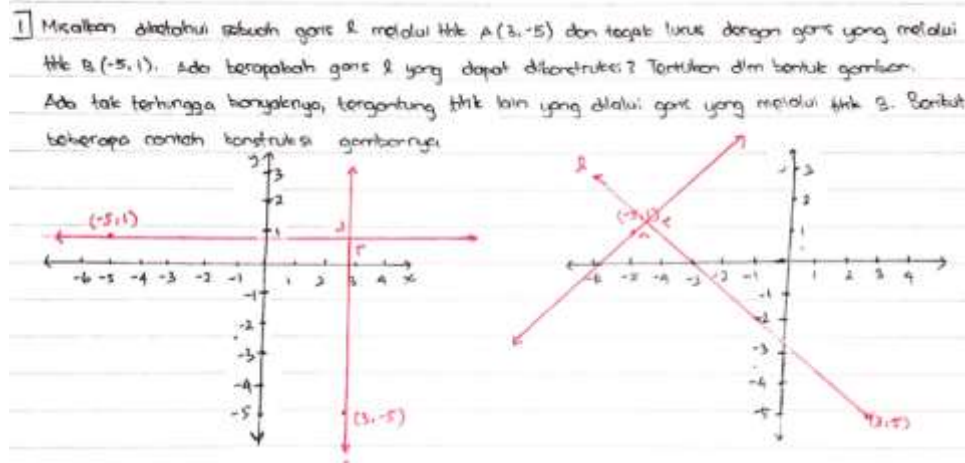 1 Misalkan diketahui sebuah garis l melalui titik A (3,-5) dan tegak lurus dengan garis yang melalui
titik B (-5,1). Ada berapakah garis l yang dapat dikonstruksi? Tentukan dlm bentuk gambar.
Ada tak terhingga banyaknya, tergantung titik lain yang dilalui garis yang melalui titik B. Berikut
beberapa contoh konstruksi gambarnya
(-5,1)
3
2
1
-6 -5 -4 -3 -2 -1 1 2 3 4 x
-1
-2
-3
-4
-5
(3,-5)
l
(-5,1)
3
2
1
-6 -5 -4 -3 -2 -1 1 2 3 4
-1
-2
-3
-4
-5
(3,-5)